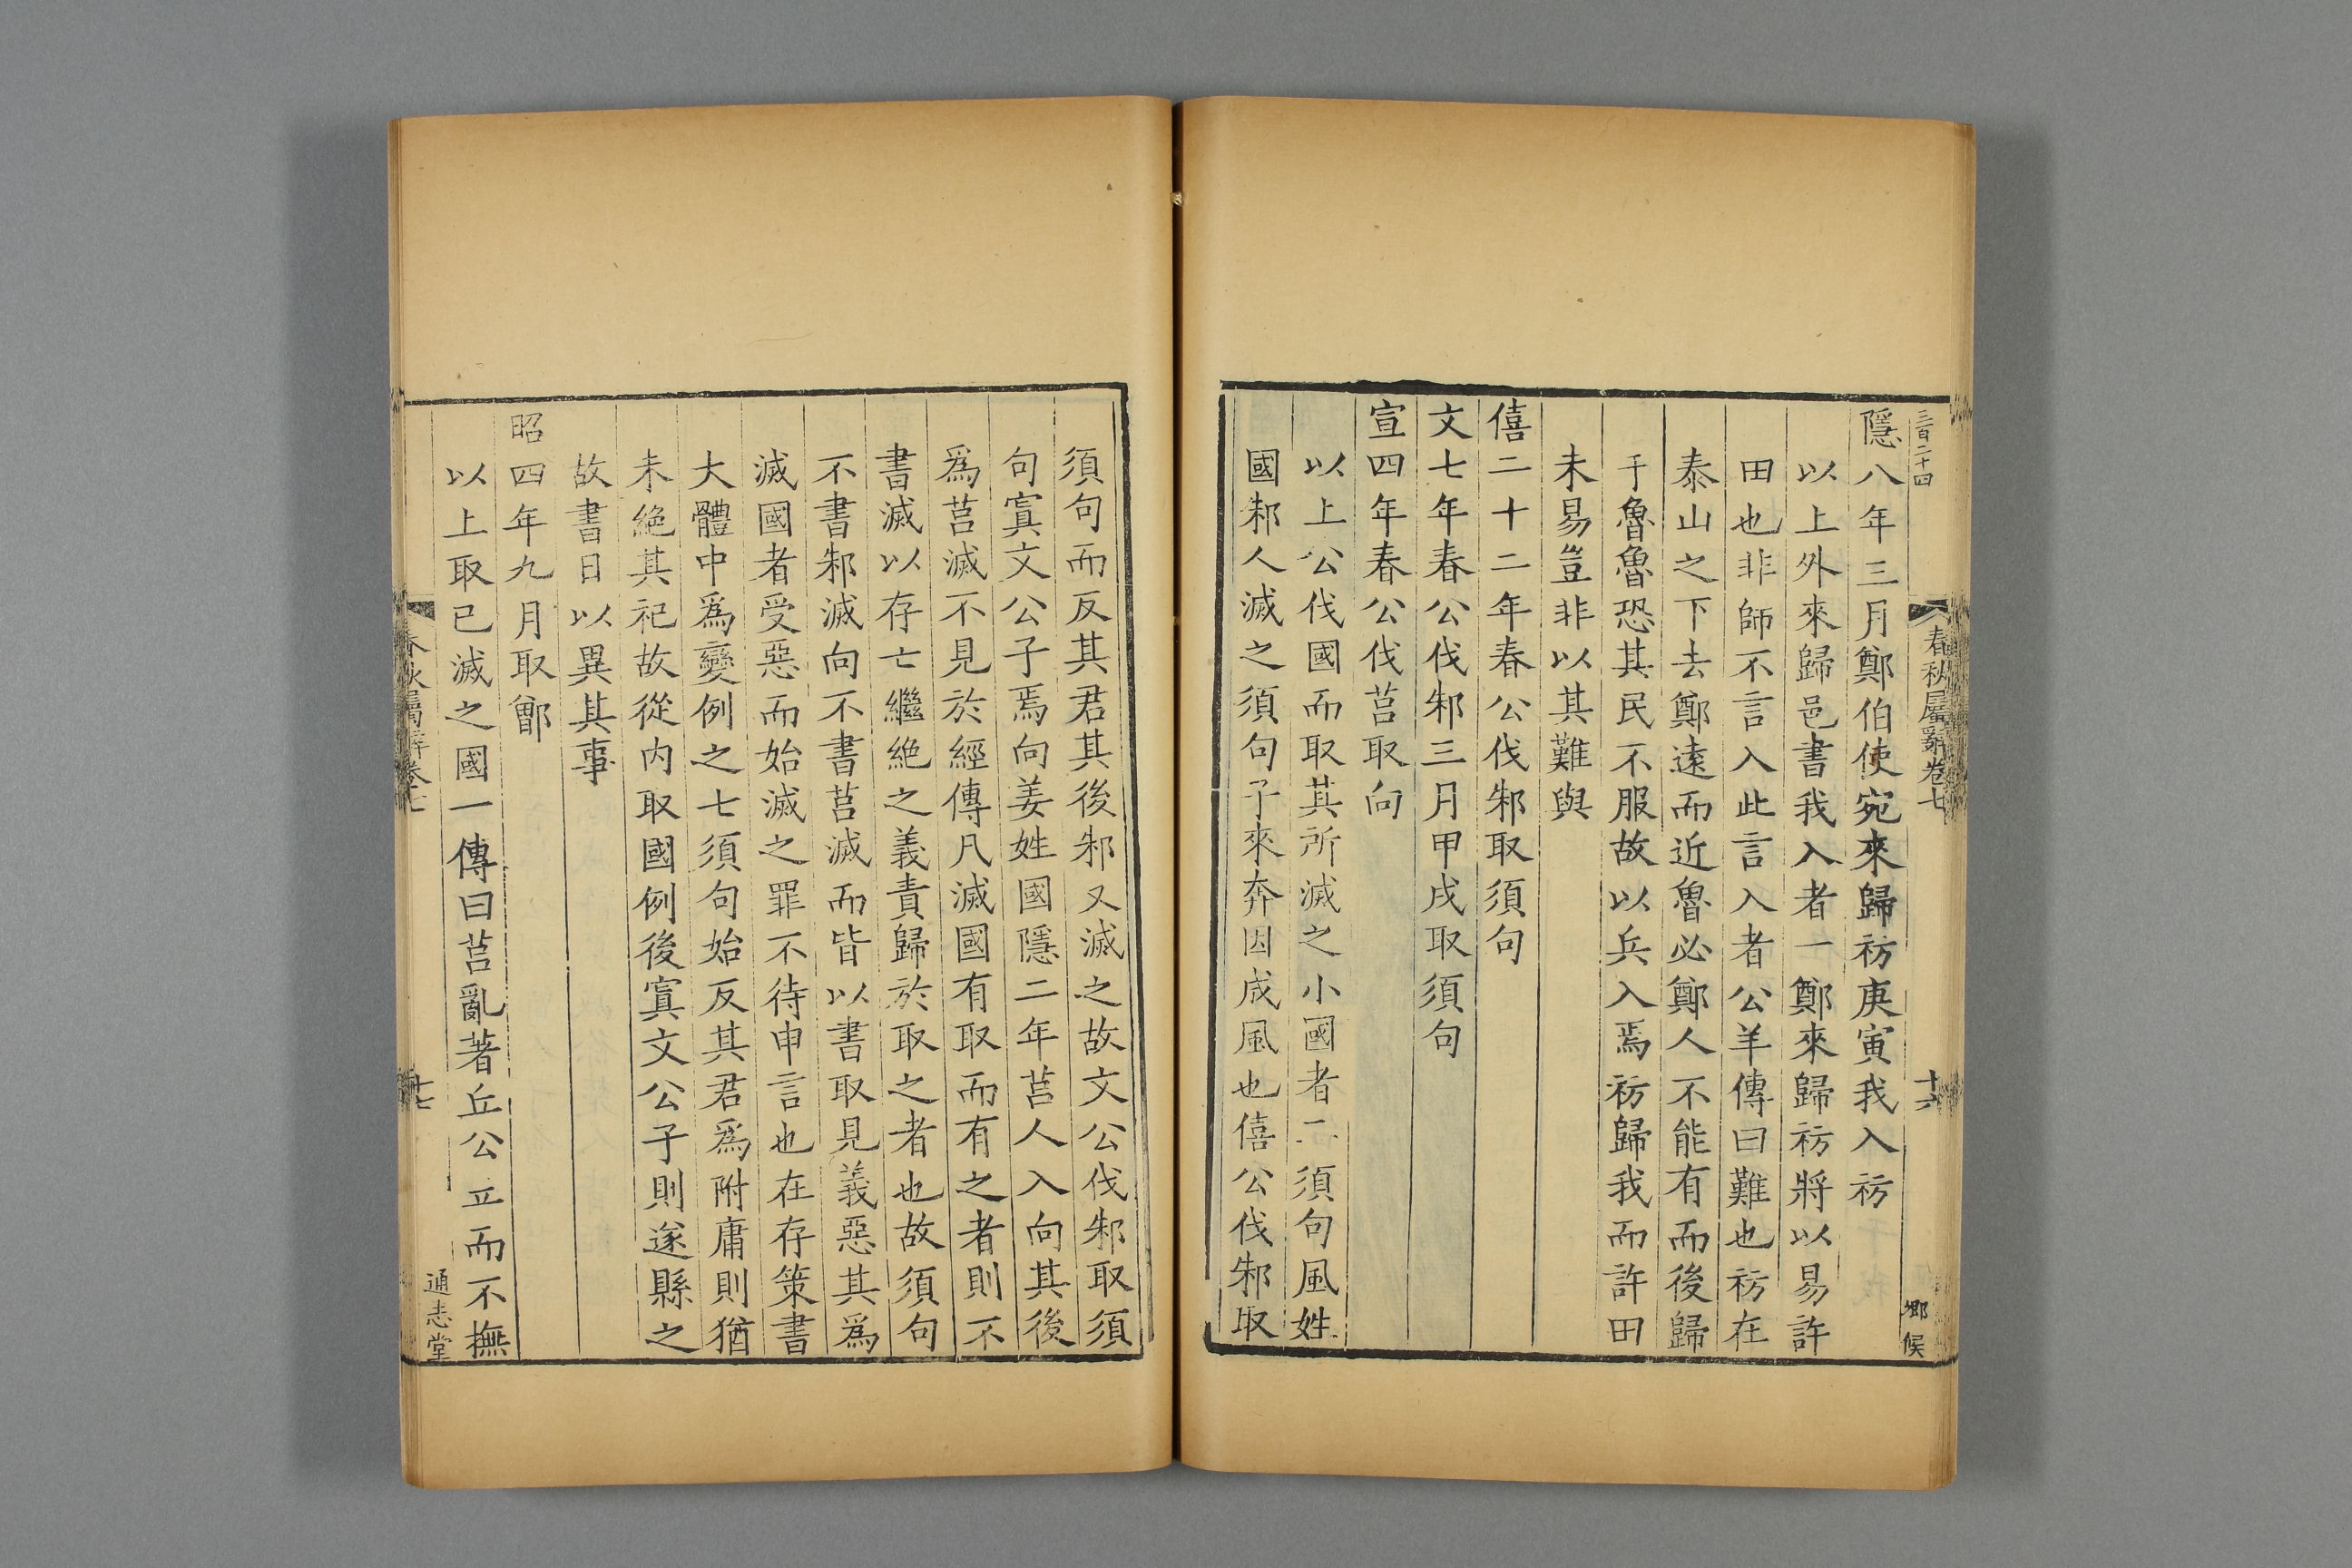 三百二十四
春秋屬辭卷七
十六
鄉侯
隱八年三月鄭伯使宛來歸祊庚寅我入祊
以上外來歸邑書我入者一鄭來歸祊將以易許
田也非師不言入此言入者公羊傳曰難也祊在
泰山之下去鄭遠而近魯必鄭人不能有而後歸
于魯魯恐其民不服故以兵入焉祊歸我而許田
未易豈非以其難與
僖二十二年春公伐邾取須句
文七年春公伐邾三月甲戌取須句
宣四年春公伐莒取向
以上公伐國而取其所滅之小國者二須句風姓
國邾人滅之須句子來奔因成風也僖公伐邾取
須句而反其君其後邾又滅之故文公伐邾取須
句寘文公子焉向姜姓國隱二年莒人入向其後
爲莒滅不見於經傳凡滅國有取而有之者則不
書滅以存亡繼絶之義責歸於取之者也故須句
不書邾滅向不書莒滅而皆以書取見義惡其爲
滅國者受惡而始滅之罪不待申言也在存策書
大體中爲變例之七須句始反其君爲附庸則猶
未絶其祀故從内取國例後寘文公子則遂縣之
故書日以異其事
昭四年九月取鄫
以上取已滅之國一傳曰莒亂著丘公立而不撫
春秋屬辭卷七
十七
通志堂